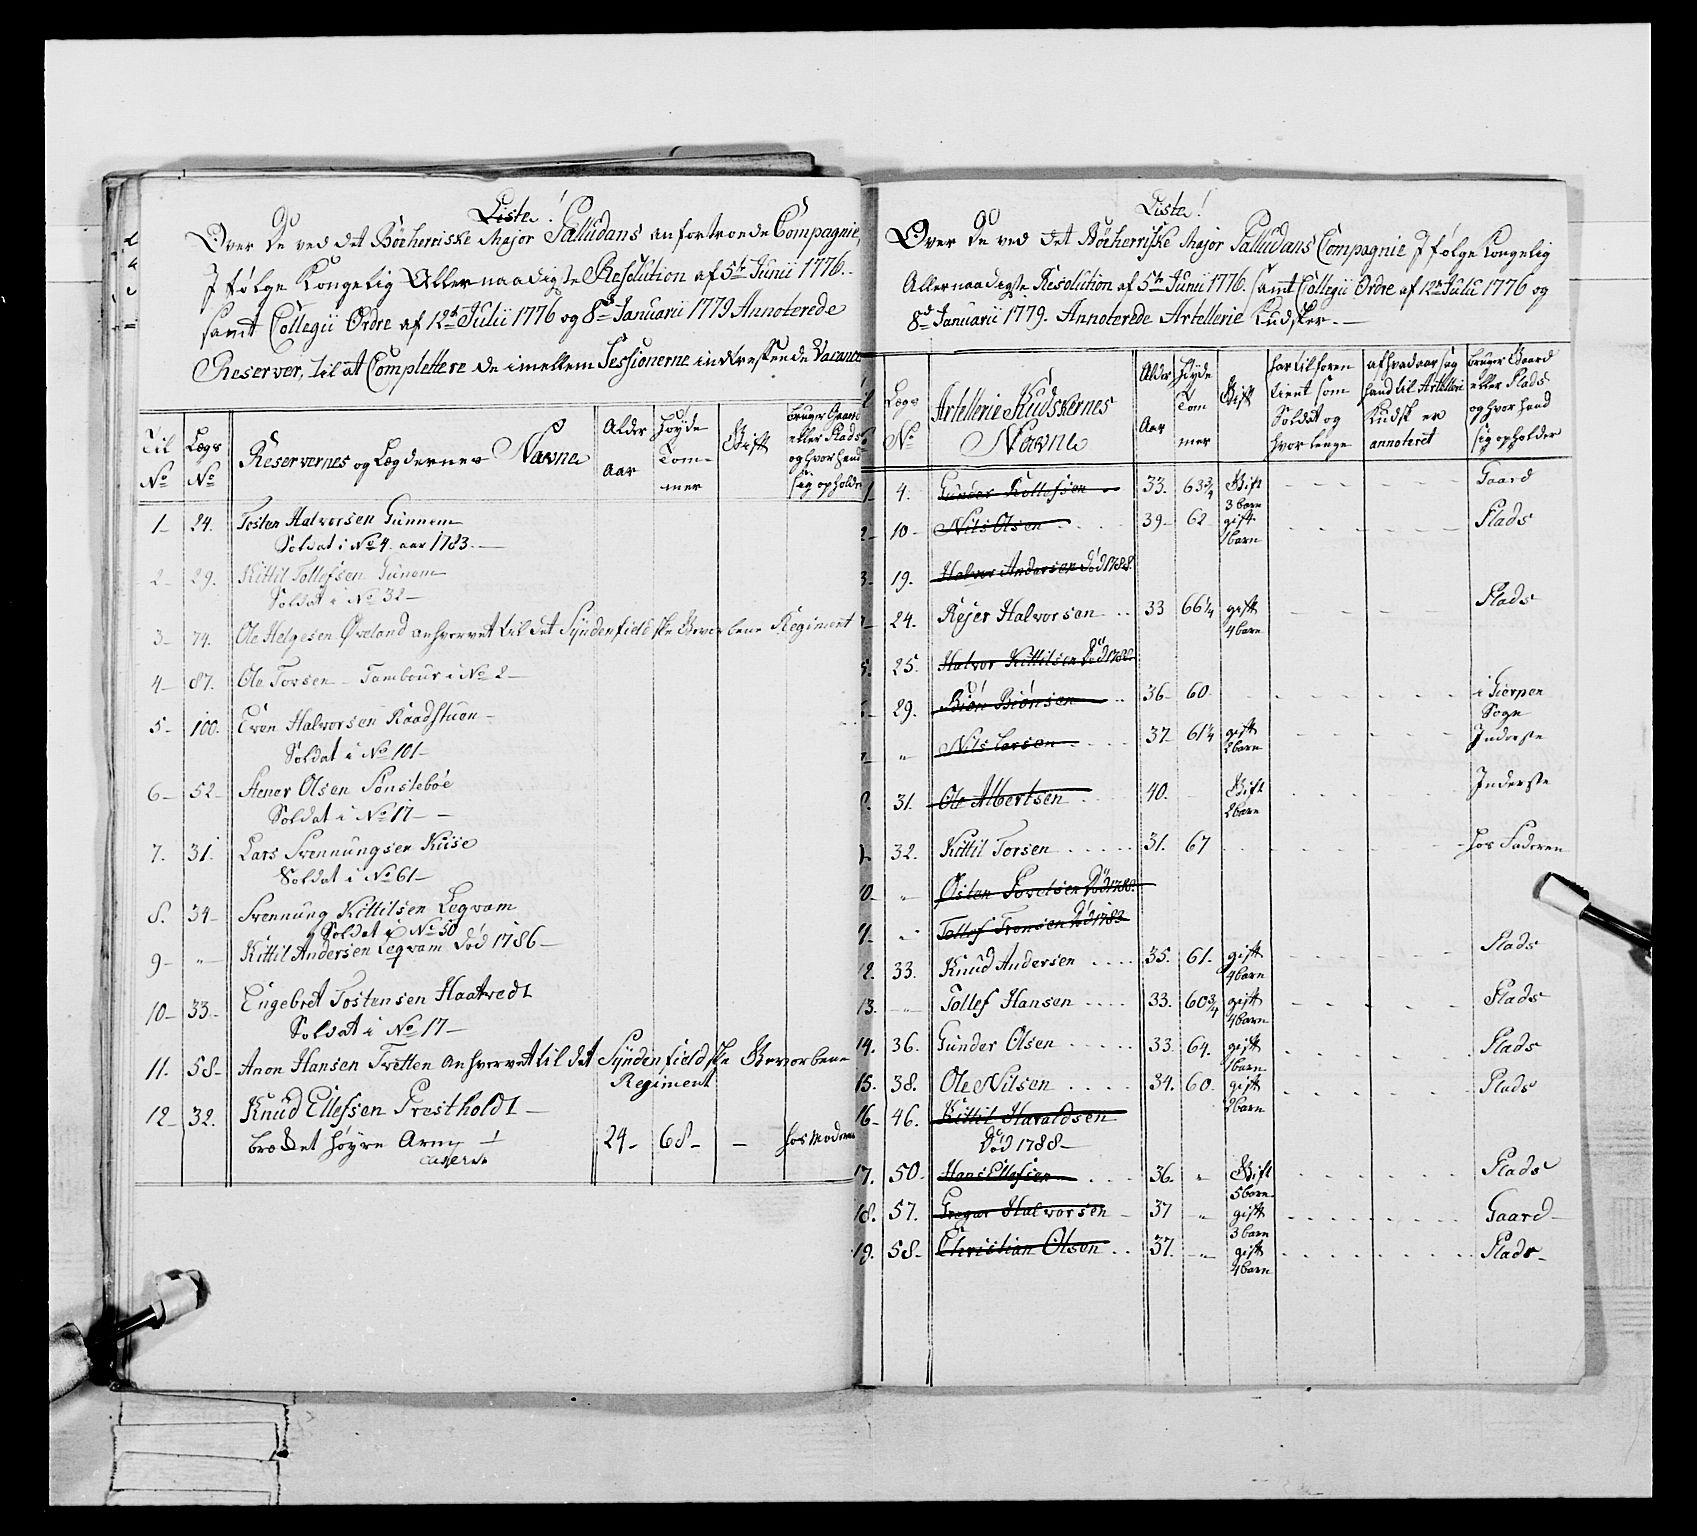 Liste!
Over De ved det Böeherriske Major Palludans anfortroede Compagnie,
Ifölge Kongelig Allernaadigste Resolution af 5te Junii 1776.
samt Collegii Ordre af 12te Julii 1776 og 8de Januarii 1779 Annoterede
Reserver, til at Complettere de imellem Sessionerne indtreffende Vacance
Til No
Lægs No
Reservernes og Lægdernes Navne
Alder Aar
Höyde Tommer
Gift
bruger Gaard eller Plads og hvor hand sig opholder
1 24. Tosten Halvorsen Gunnem
Soldat i No 4. aar 1783.
2 29. Kittil Tollefsen Gunem
Soldat i No 32
3 74. Ole Helgesen Öveland anhvervet til det Syndenfieldske Gevorbene Regiment
4 87. Ole Torsen Tambour i No 2
5 100. Even Halvorsen Raadstuen
Soldat i No 101
6 52 Stener Olsen Sönsteböe
Soldat i No 17
7. 31. Lars Svennungsen Kiise
Soldat i No 61
8. 34 Svennung Kittilsen Legvam
Soldat i No 50
9 " Kittil Andersen Legvam Död 1786
10 33 Engebret Tostensen Haatvedt
Soldat i No 17
11. 58 Anon Hansen Tvetten anhvervet til det Syndenfieldske Gevorbene
Regiment
12 32. Knud Ellefsen Prestholdt
brödet höyre Arm 24 68 hos Moderen
Liste!
Over De ved det Böeherriske Major Palludans Compagnie Ifölge Kongelig
Allernaadigste Resolution af 5te Junii 1776. samt Collegii Ordre af 12te Julii 1776 og
8de Januarii 1779. Annoterede Artellerie Kudsker.
Lægs No
Artellerie Kudskernes Navne
Alder Aar
Höyde Tommer
Gift
har tilforen tient som Soldat og hvor lenge
af hvad aarsag hand til Artelleri Kudsk er annoteret
bruger Gaard eller Plads og hvor hand sig opholder
1 4. Gunder Kollefsen 33. 63 3/4 Gift 3 barn Gaard
2 10 Nils Olsen 39 62 gift 1 barn Plads
3 19. Halvor Andersen Död 1788
24. Rejer Halvorsen 33 66 1/4 gift 4 barn Plads
5. 25. Halvor Kittilsen Död
29. Biön Biönsen 36 60 i Gierpen Sogn
" Nils Larsen 37 61 1/4 gift 2 barn Inderste
8. 31. Ole Albertsen 40. Gift 2 barn Inderste
32. Kittil Torsen 31. 67 hos Faderen
10 " Östen Död
11 " Tollef Död
12. 33. Knud Andersen 35. 61. gift 4 barn Plads
13. " Tollef Hansen 33. 60 3/4 gift 4 barn Plads
14. 36. Gunder Olsen 33. 64. gift 1 barn Plads
15. 38. Ole Nilsen 34. 60. gift 2 barn Plads
16 46. Kittil Haraldsen
Död 1788
17. 50 Hans Ellefsen 36. " Gift 5 barn Plads
18. 57. Gregar Halvorsen 37 " gift 3 barn Gaard
19. 58 Christian Olsen 37. " gift 4 barn Plads